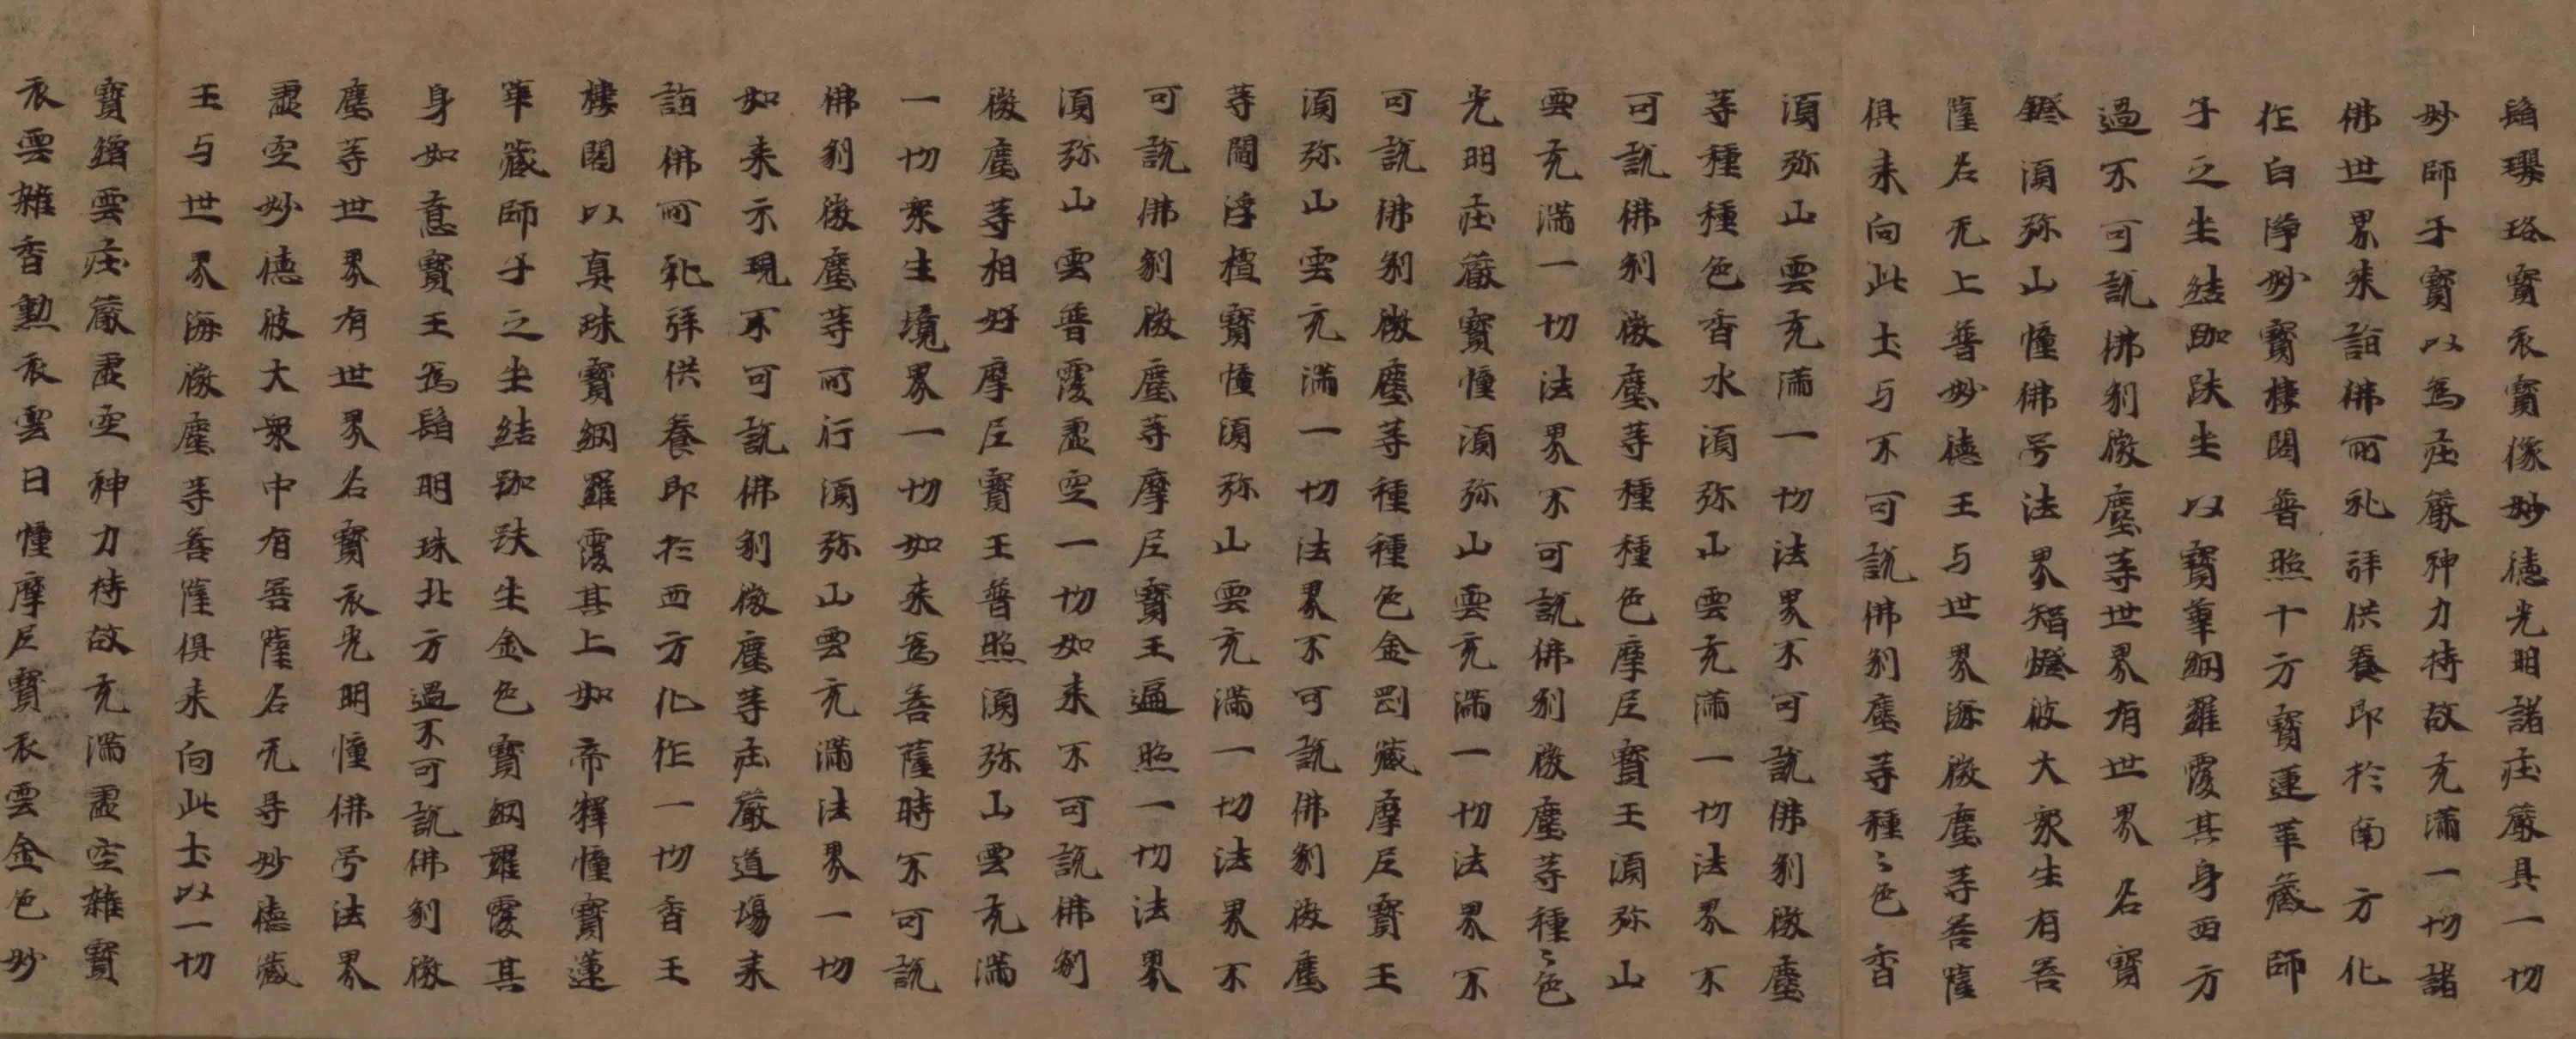 髻瓔珞寶衣寶像妙德光明諸庄嚴具一切
妙師子寶以為庄嚴神力持故充滿一切諸
佛世界来詣佛所礼拜供養即於南方化
作白淨妙寶樓閣普照十方寶蓮華藏師
子之坐結跏趺坐以寶華網羅覆其身西方
過不可說佛刹微塵等世界有世界名寶
鐙須弥山幢佛号法界智燈彼大衆生有菩
薩名无上普妙德王与世界海微塵等菩薩
俱来向此土与不可說佛刹塵等種〻色香
須弥山雲充滿一切法界不可說佛刹微塵
等種種色香水須弥山雲充滿一切法界不
可說佛刹微塵等種種色摩尼寶王須弥山
雲充滿一切法界不可說佛刹微塵等種〻色
光明庄嚴寶幢須弥山雲充滿一切法界不
可說佛刹微塵等種種色金剛藏摩尼寶王
須弥山雲充滿一切法界不可說佛刹微塵
等閻浮檀寶幢須弥山雲充滿一切法界不
可說佛刹微塵等摩尼寶王遍照一切法界
須弥山雲普覆虛空一切如来不可說佛刹
微塵等相好摩尼寶王普照須弥山雲充滿
一切衆生境界一切如来為菩薩時不可說
佛刹微塵等所行須弥山雲充滿法界一切
如来示現不可說佛刹微塵等庄嚴道場来
詣佛所礼拜供養即於西方化作一切香王
樓閣以真珠寶網羅覆其上如帝釋幢寶蓮
華藏師子之坐結跏趺坐金色寶網羅覆其
身如意寶王為髻明珠北方過不可說佛刹微
塵等世界有世界名寶衣光明幢佛号法界
虛空妙德彼大衆中有菩薩名无㝵妙德藏
王与世界海微塵等菩薩俱来向此土以一切
寶繒雲庄嚴虛空神力持故充滿虛空雜寶
衣雲雜香勲衣雲日幢摩尼寶衣雲金色妙